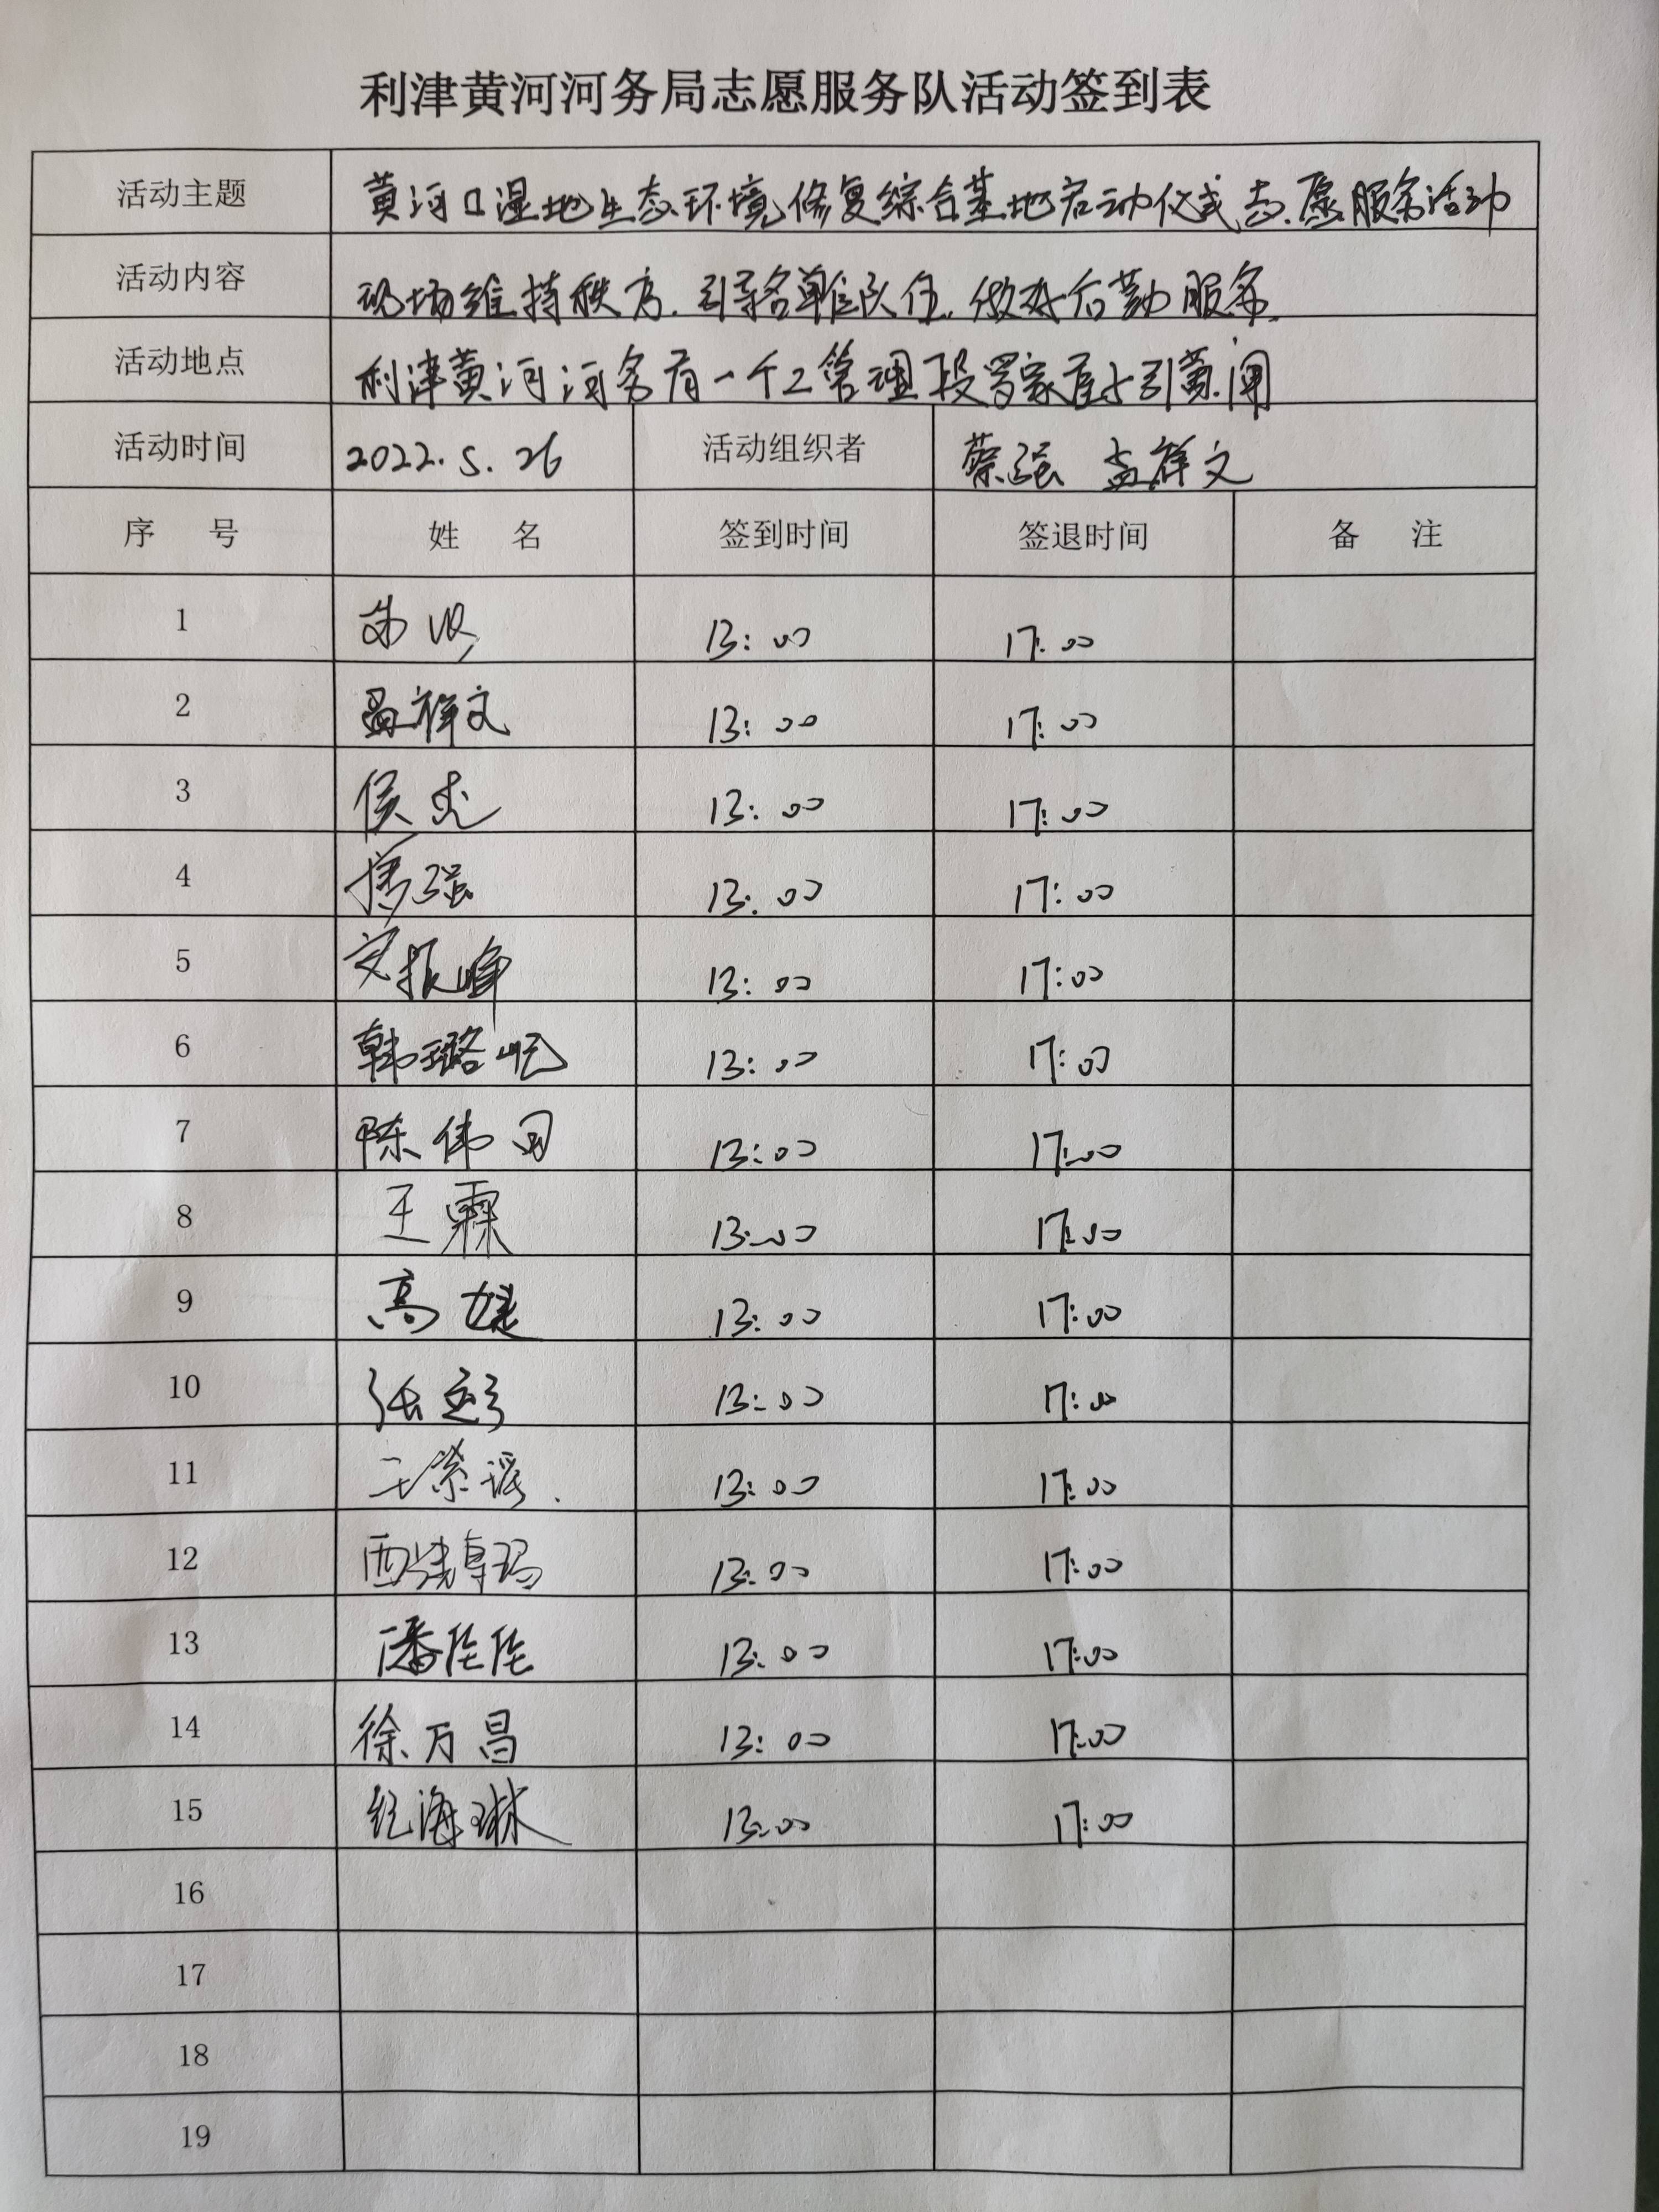 利津黄河河务局志愿服务队活动签到表
活动主题 黄河口湿地生态环境修复综合基地启动仪式志愿服务活动
活动内容 现场维持秩序.引导各单位队伍.做好后勤服务.
活动地点 利津黄河河务局一个工管理段罗家屋子引黄闸
活动时间 2022.5.26 活动组织者 蔡强 孟祥文
序 号 姓 名 签到时间 签退时间 备 注
1 13:00 17:00
2 孟祥文 13:00 17:00
3 侯 13:00 17:00
4 强 13:00 17:00
5 振峰 13:00 17:00
6 韩璐 13:00 17:00
7 陈伟 13:00 17:00
8 王霖 13:00 17:00
9 高婕 13:00 17:00
10 张 13:00 17:00
11 王 13:00 17:00
12 西 卓玛 13:00 17:00
13 潘佳佳 13:00 17:00
14 徐万昌 13:00 17:00
15 纪海琳 13:00 17:00
16
17
18
19